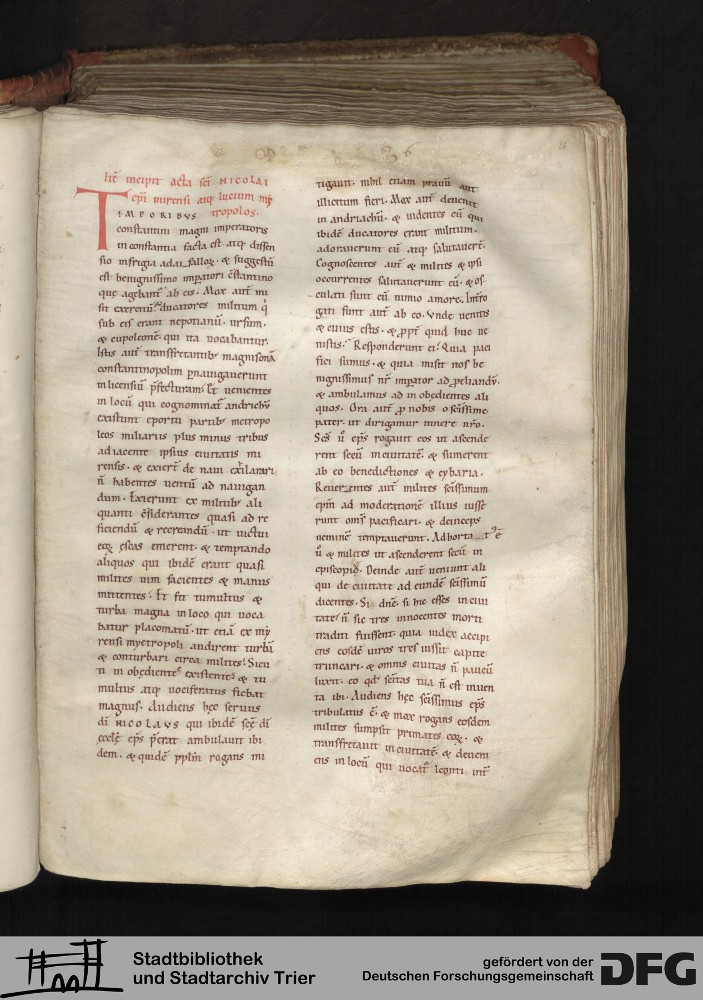 hic incipit acta sci NICOLAI
epi mirensi atq lucium my
TEMPORIBVS tropolos.
constantini magni imperatoris
in constantia facta est atq; dissen
sio in frigia a taifallor. & suggestū
est benignissimo imperatori cōstantino
que agebant ab eis. Mox aut mi
sit exercitū & ducatores militum q
sub eis erant nepotianū. ursum.
& eupoleonē. qui ita vocabantur.
Isti aut transfretantib magnisonā
constantinopolim pnavigaverunt
in liciensiū pfecturam. Et venientes
in locū qui cognominat andriehy
existunt eporti partib metropo
leos miliariis plus minus tribus
adiacente ipsius civitatis mi
rensis. & exiert de navi
n habentes ventū ad navigan
dum. Exierunt ex militib ali
quanti cōsiderantes quasi ad re
ficiendū & recreandū. ut victui
eoꝝ escas emerent. & temptando
aliquos qui ibidē erant quasi
milites vim facientes & manus
mittentes. Et fit tumultus &
turba magna in loco qui voca
batur placomatū. ut etiā ex my
rensi myetropoli audirent turbā
& conturbari circa milites. Sicu
ti in obedientē existentē & tu
multus atq vociferatus fiebat
magnus. Audiens hęc servus
di NICOLAVS qui ibidē scę di
ęcclę eps perat ambulavit ibi
dem. & quidē pplm rogans mi
tigavit. nihil etiam pravū aut
illicitum fieri. Mox aut devenit
in andriachū. & videntes eū qui
ibidē ducatores erant militum.
adoraverunt eū atq salutavert.
Cognoscentes aut & milites & ipsi
occurrentes salutaverunt eū. & os
culati sunt eū nimio amore. Intro
gati sunt aut ab eo. Unde venitis
& cuius estis. & ppt quid huc ve
nistis. Responderunt ei. Quia paci
fici sumus. & quia misit nos be
nignissimus nr impator ad peliandū.
& ambulamus ad in obedientes ali
quos. Ora aut p nobis o scissime
pater. ut dirigamur itinere nro.
Scs ū eps rogavit eos ut ascende
rent secū in civitatē. & sumerent
ab eo benedictiones & cybaria.
Reverentes aut milites scissimum
epm ad moderatione illius iusse
runt oms pacificari. & deinceps
neminē temptaverunt. Adhorta
ū & milites ut ascenderent secū in
episcopio. Deinde aut veniunt ali
qui de civitate ad eundē scissimū
dicentes. Si dnē. si hic esses in civi
tate n sic tres innocentes morti
traditi fuissent. quia iudex accipi
ens eosdē viros tres iussit capite
truncari. & omnis civitas n parū
luxit. eo qd scitas tua n est inven
ta ibi. Audiens hęc scissimus eps
tribulatus ē. & mox rogans eosdem
milites sumpsit primates eoꝝ. &
transfretavit in civitatē. & deveni
ens in locū qui vocat leonti int
Stadtbibliothek
und Stadtarchiv Trier
gefördert von der
Deutschen Forschungsgemeinschaft
DFG